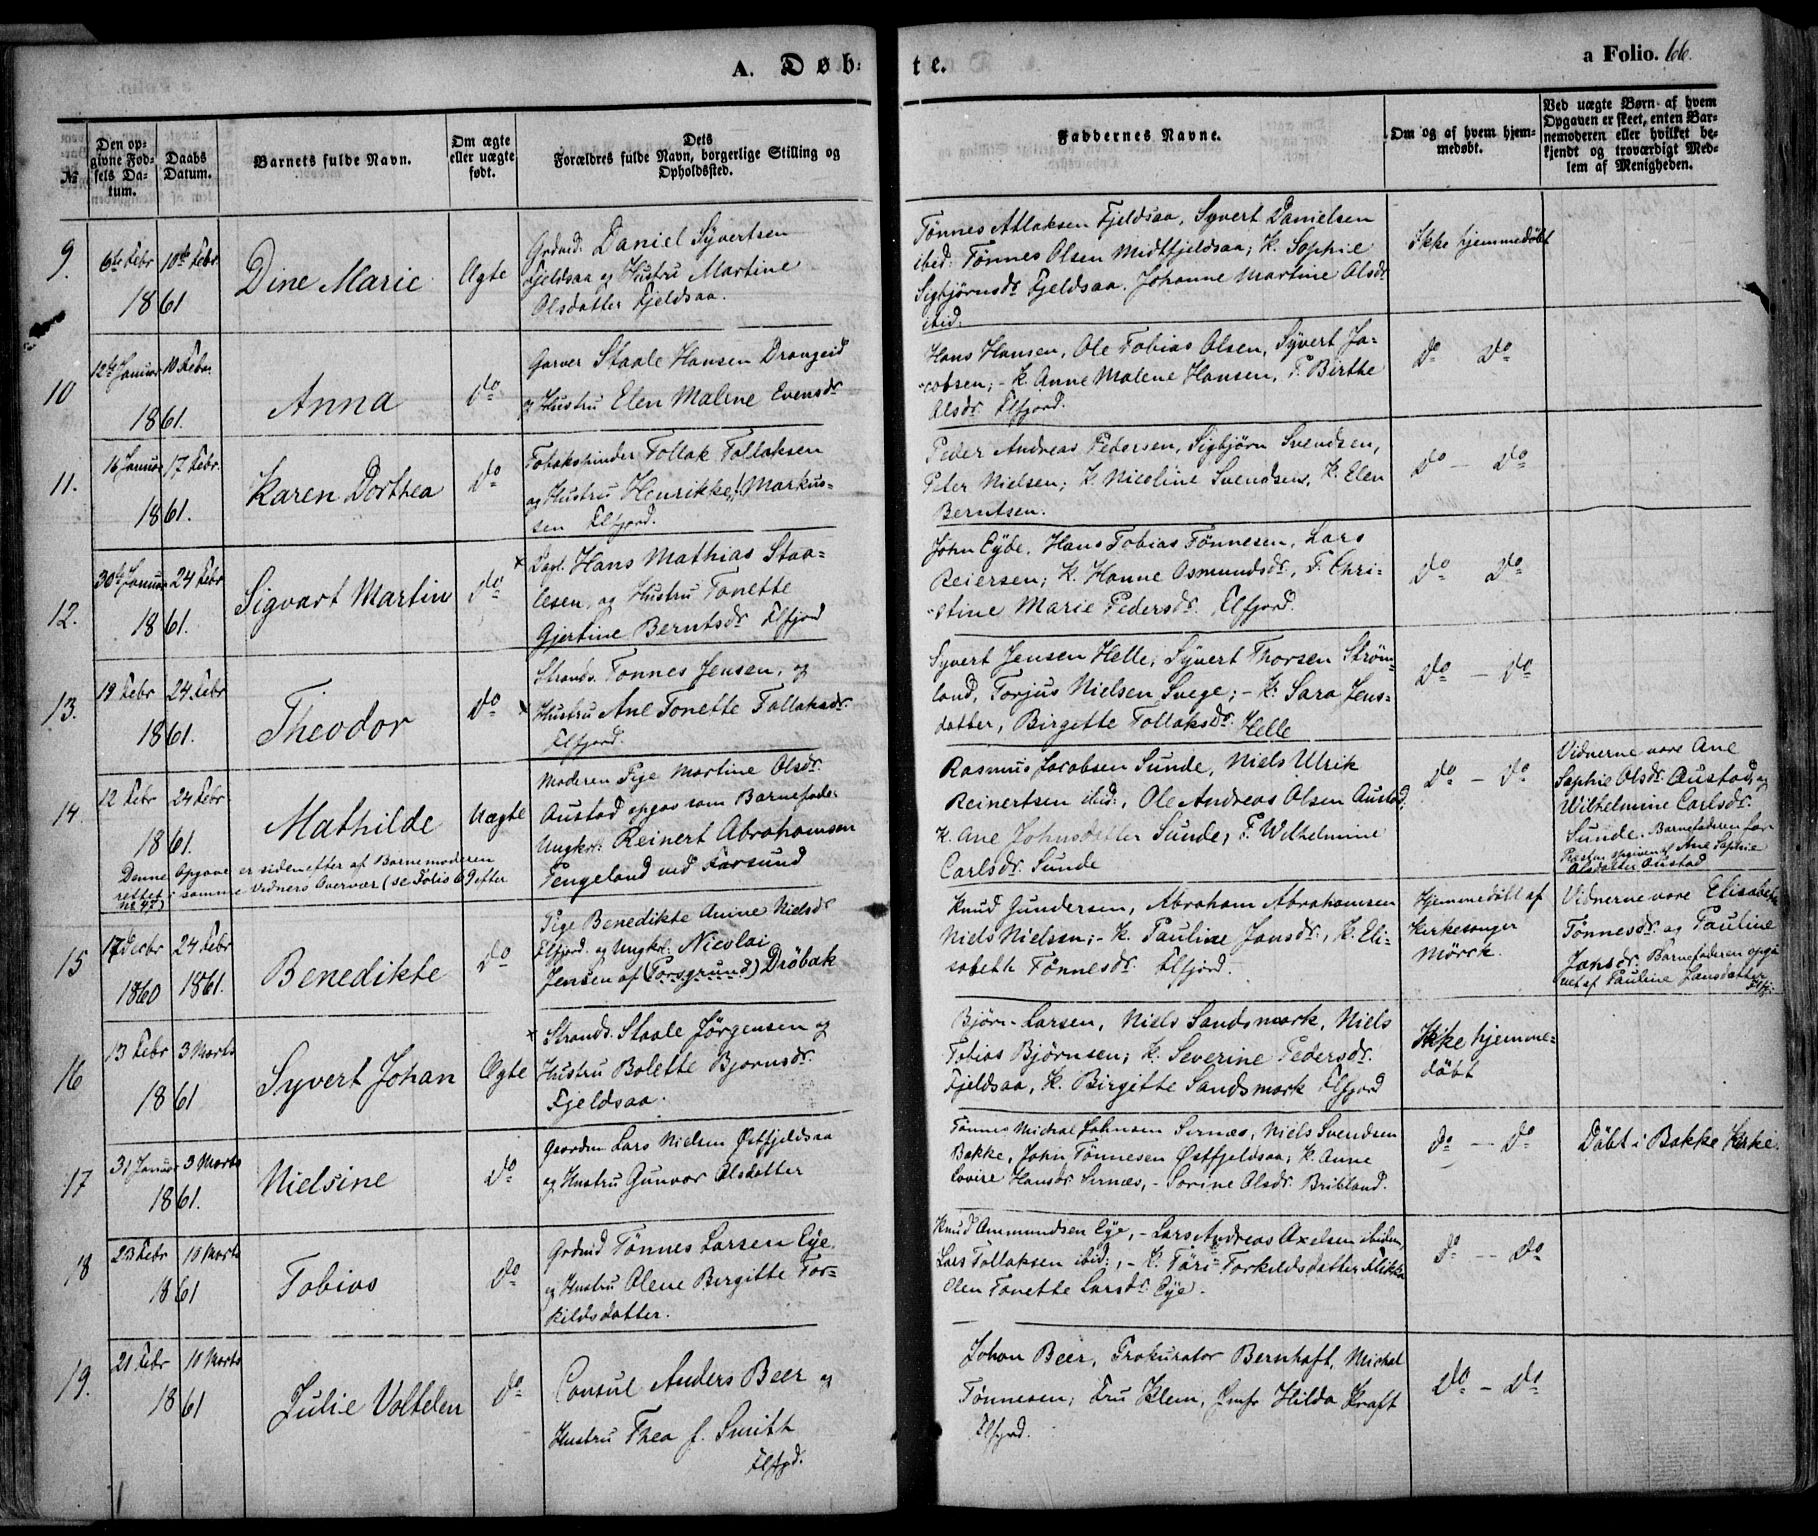 A. Døb-
te.
a Folio. 66.
No
Den op-
givne Fød-
sels Da-
tum.
Daabs
Datum.
Barnets fulde Navn.
Om ægte
eller uægte
født.
Dets
Forældres fulde Navn, borgerlige Stilling og
Opholdssted.
Faddernes Navne.
Om og af hvem hjem-
medøbt.
Ved uægte Børn af hvem
Opgaven er skeet, enten Bar-
nemoderen eller hvilket be-
kjendt og troværdigt Med-
lem af Menigheden.
9.
6te Febr
10de Febr
1861
Dine Marie
Ægte
Grdmd. Daniel Syvertsen
Fjeldsaa og Hustru Martine
Olsdatter Fjeldsaa.
Tønnes Atlaksen Fjeldsaa, Syvert Danielsen
ibid: Tønnes Olsen Midtfjeldsaa; K. Sophie
Sigbjørnsdr Fjeldsaa. Johanne Martine Olsdr
ibid:
Ikke hjemmedøbt
10
12te Januar
10 Febr
1861.
Anna
do
Garver Staale Hansen Drangeid
og Hustru Elen Malene Evensdr
Hans Hansen, Ole Tobias Olsen, Syvert Ja-
cobsen; - K. Anne Malene Hansen, P. Birthe
Olsdr. Flfjord.
do do
11.
16 Januar
17 Febr.
1861.
Karen Dorthea
do
Tobakspinder Tollak Tollaksen
og Hustru Henrikke Markus-
sen Flfjord.
Peder Andreas Pedersen, Sigbjørn Svendsen,
Peter Nielsen; K. Nicoline Svendsen, K. Elen
Berntsen.
do - do
12.
30te Januar
24 Febr
1861.
Sigvart Martin
do
x Dagl. Hans Mathias Staa-
lesen, og Hustru Tonette
Gjertine Berntsdr Flfjord
John Eyde, Hans Tobias Tønnesen, Lars
Reiersen; K. Hanne Osmundsdr, P. Chri-
stine Marie Pedersdr. Flfjord.
do do
13.
19 Febr
24 Febr
1861.
Theodor
do
Strands. Tønnes Jensen, og
x Hustru Ane Tonette Tollaksdr
Flfjord.
Syvert Jensen Helle, Syvert Thorsen Strøm-
land, Torjus Nielsen Svege; - K. Sara Jens-
datter, Birgitte Tollaksdr. Helle
do - do
14.
12 Febr
24 Febr
1861.
Mathilde
Uægte
Moderen Pige Martine Olsdr.
Austad opgav som Barnefader
Ungkr. Reinert Abrahamsen
Fengeland ved Farsund
Denne Opgave er sidenefter af Barnemoderen
rettet i samme Vidners Overvær (se Folio 69 efter
no 45)
Rasmus Jacobsen Sunde, Niels Ulrik
Reinertsen ibid:, Ole Andreas Olsen Austad,
K. Ane Johnsdatter Sunde, P. Wilhelmine
Carlsdr. Sunde
do - do
Vidnerne vare Ane
Sophie Olsdr. Austad, og
Wilhelmine Carlsdr.
Sunde. Barnefaderen for
Præsten opgiven af Ane Sophie
Olsdatter Austad
15
17 Decbr
24 Febr
1860
1861.
Benedikte
do
Pige Benedikte Anine Nielsdr
Flfjord, og Ungkr. Nicolai
Jensen af (Porsgrund) Drøbak
Knud Gundersen, Abraham Abrahamsen
Niels Nielsen; - K. Pauline Jansdr, K. Eli-
sabeth Tønnesdr. Flfjord.
Hjemmedøbt af
Kirkesanger
Mørck.
Vidnerne vare Elisabeth
Tønnesdr. og Pauline
Jansdr. Barnefaderen opgi-
vet af Pauline Jansdatter
Flfj.
16
13 Febr
3 Marts
1861
Syvert Johan
Ægte
x Strands. Staale Jørgensen og
Hustru Bolette Bjørnsdr.
Fjeldsaa.
Bjørn Larsen, Niels Sandsmark, Niels
Tobias Bjørnsen; K. Severine Pedersdr.
Fjeldsaa, K. Birgitte Sandsmark Flfjord
Ikke hjemme-
døbt
17
31 Januar
3 Marts
1861.
Nielsine
do
Gaardm Lars Nielsen Østfjeldsaa
og Hustru Gunvor Olsdatter
Tønnes Michal Johnsen Sirnæs, Niels Svendsen
Bakke, John Tønnesen Østfjeldsaa; K. Anne
Lovise Hansdr Sirnæs, - Sorine Olsdr. Bribland.
do - do
Døbt i Bakke Kirke.
18
23 Febr
10 Marts
1861
Tobias
do
Grdmd Tønnes Larsen Eye,
og Hustru Olene Birgitte Tor-
kildsdatter.
Knud Ommundsen Eye, - Lars Andreas Axelsen ibidem,
Lars Tollaksen ibid:, - K. Tøri Torkildsdatter Flikka
Elen Tonette Larsdr. Eye.
do - do
19.
21 Febr
10 Marts
1861
Julie Voltelen
do
Consul Anders Beer og
Hustru Thea f. Smith
Flfjd.
Johan Beer, Prokurator Bernhoft, Michal
Tønnesen; Fru Klem, Jmfr Hilda Kraft
Flfjord.
do - do